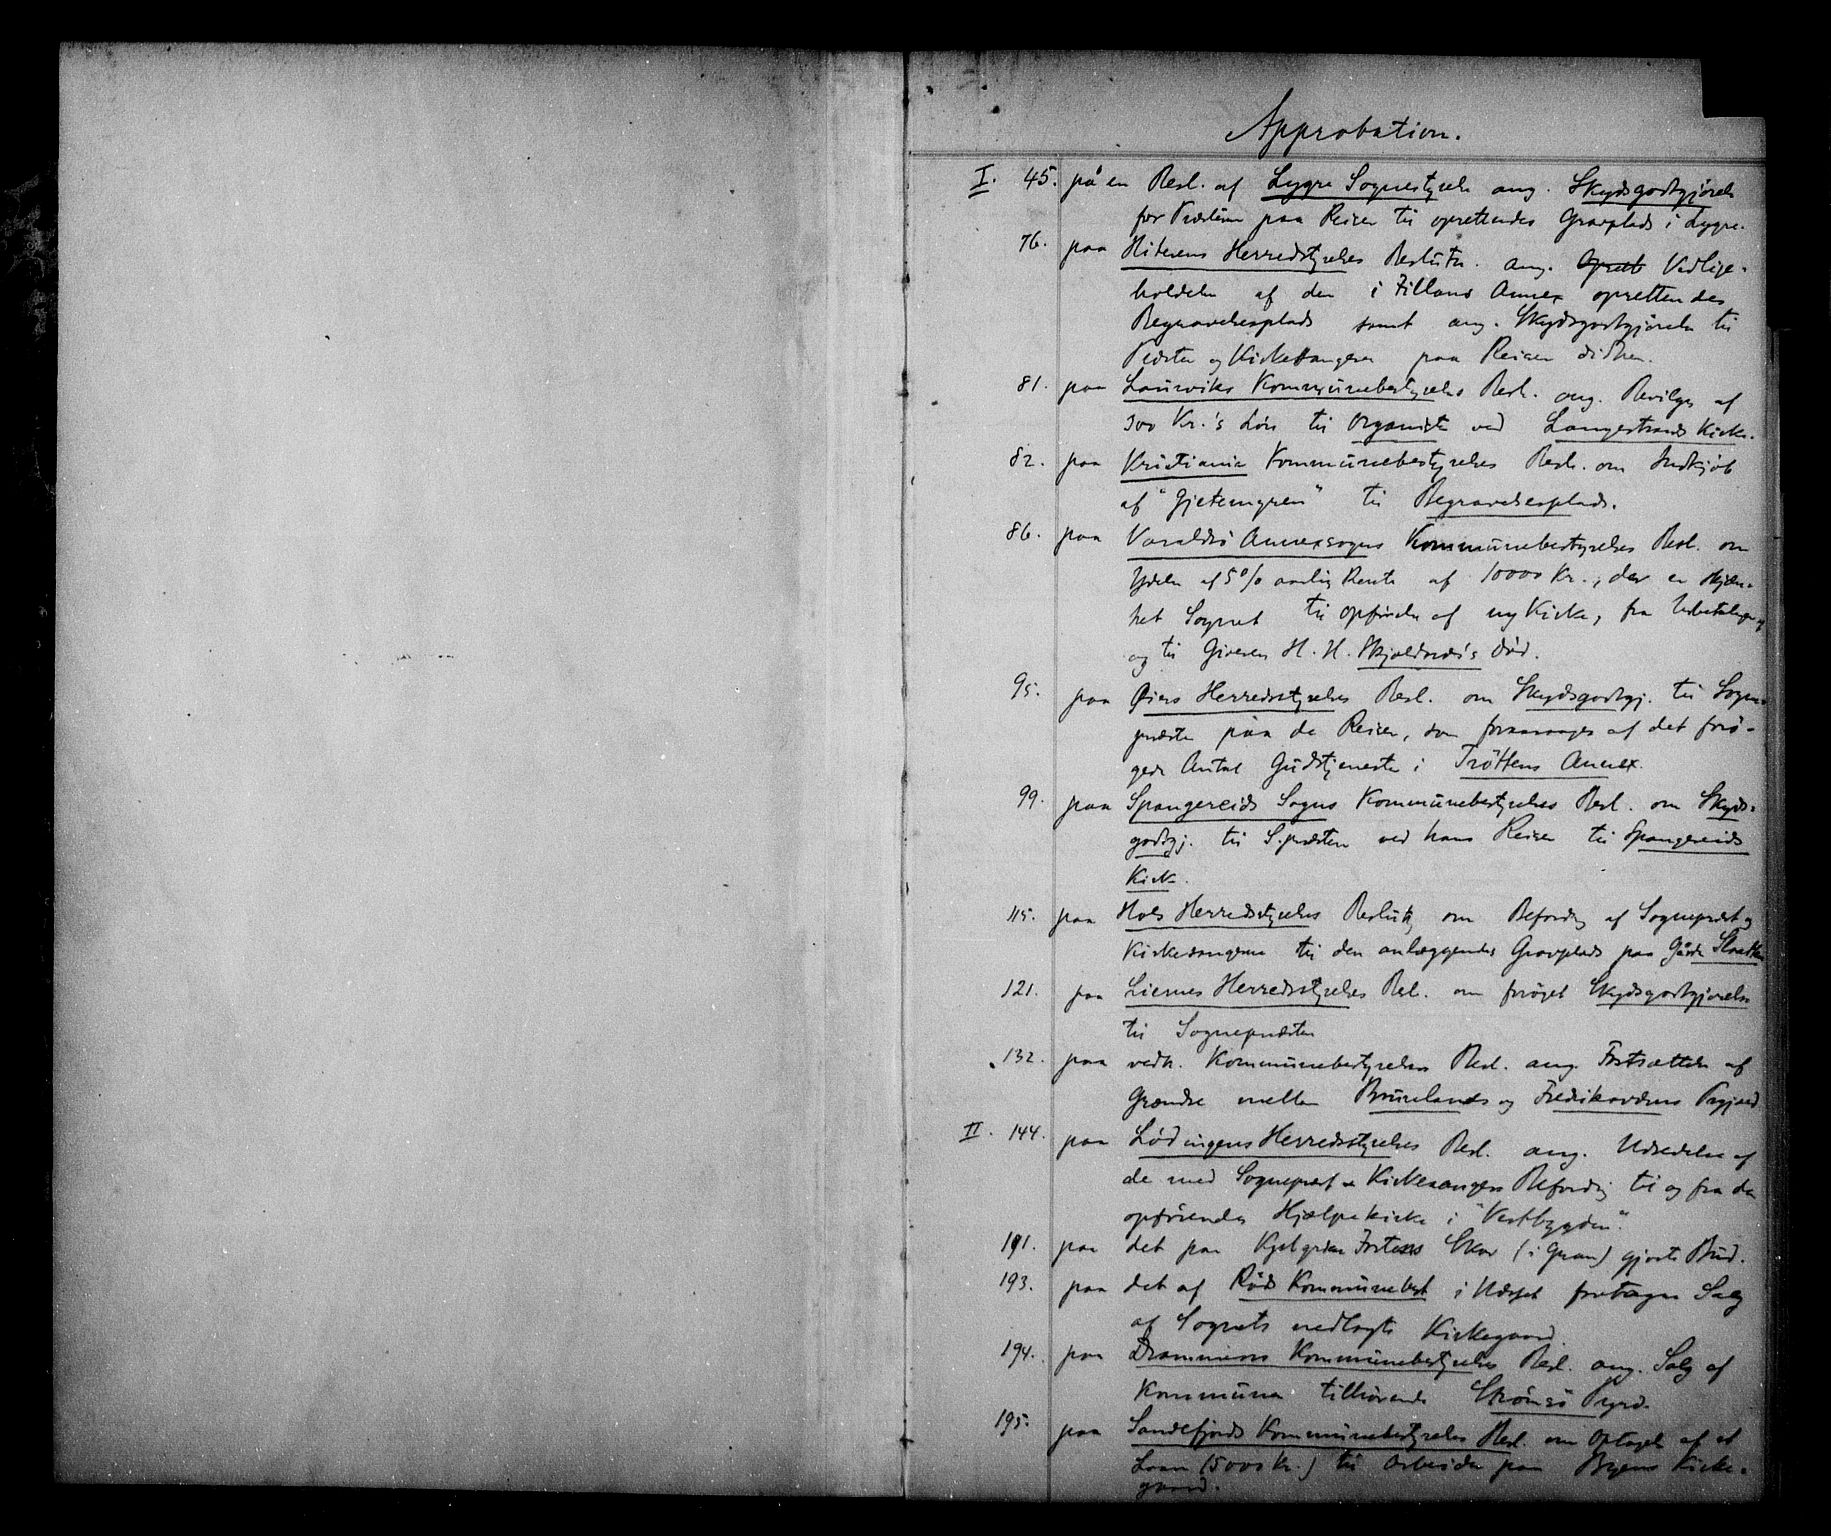 Approbation.
I. 45. på en Resl. af Lygre Sognestyrels ang. Skydsgodtgjörelse
for Præsten paa Reiser til oprettendes Gravplads i Lygre.
76. paa Hiterens Herredstyrelses Beslutn. ang. Vedlige-
holdelse af den i Fillans Annex oprettendes
Begravelsesplads samt ang. Skydsgodtgjörelse til
Præsten og Kirkesangeren paa Reiser didhen.
81. paa Laurviks Kommunebestyrelses Besl. ang. Bevilgn. af
300 Kr.'s Lön til Organisten ved Langestrands Kirke.
82. paa Kristiania Kommunebestyrelses Besl. om Indkjöb
af "Gjetemyren" til Begravelsesplads.
86. paa Varaldsö Annexsogns Kommunebestyrelses Besl. om
Ydelse af 5% aarlig Rente af 10000 Kr., der er skjæn-
ket Sognet til Opförelse af ny Kirke, fra Udbetalingen
og til Giveren H. H. Skjeldnæs's Död.
95. paa Øiers Herredsstyrelses Besl. om Skydsgodtgj. til Sogne-
præsten paa de Reiser, som foraarsages af det forö-
gede Antal Gudstjenester i Tröttens Annex.
99. paa Spangereids Sogns Kommunebestyrelses Besl. om Skyds-
godtgj. til S.præsten ved hans Reiser til Spangereids
Kirke.
115. paa Hols Herredsstyrelses Beslutn. om Befordrg af Sognepræst og
Kirkesangeren til den anlæggendes Gravplads paa Gården
121. paa Liernes Herredsstyrelses Besl. om foröget Skydsgodtgjörelse
til Sognepræsten
132. paa vedk. Kommunebestyrelsers Besl. ang. Fastsættelse af
Grændse mellem Brunlanes og Fredriksværns Prgjæld
II. 144. paa Lødingens Herredsstyrelses Besl. ang. Udredelse af
de med Sognepræst og Kirkesangers Befordrg til og fra den
opförendes Hjælpekirke i "Vestbygden".
191. paa det paa Skov (i Gran) gjorte Bud.
193. paa det af Råde Kommunebest. i Udsigt foretagne Salg
af Sognets nedlagte Kirkegaard.
194. paa Drammens Kommunebestyrelses Besl. ang. Salg af
Kommunen tilhörende Strömsö Prgrd.
195. paa Sandefjords Kommunebestyrelses Besl. om Optagelse af et
Laan (5000 Kr.) til Arbeider paa Byens Kirke-
gaard.